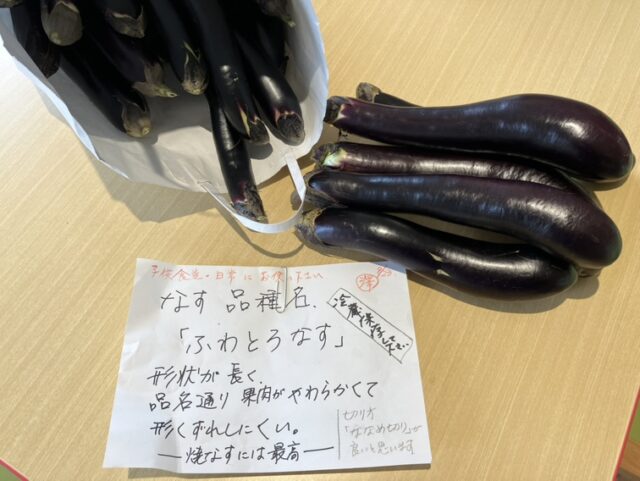 子供食堂・日常にお使い下さい
なす 品種名、
「ふわとろなす」
冷蔵保存して
形状が長く、
品名通り 果肉がやわらかくて
形くずれしにくい。
―焼なすには最高―
切り方
「ななめ切り」が
良いと思います